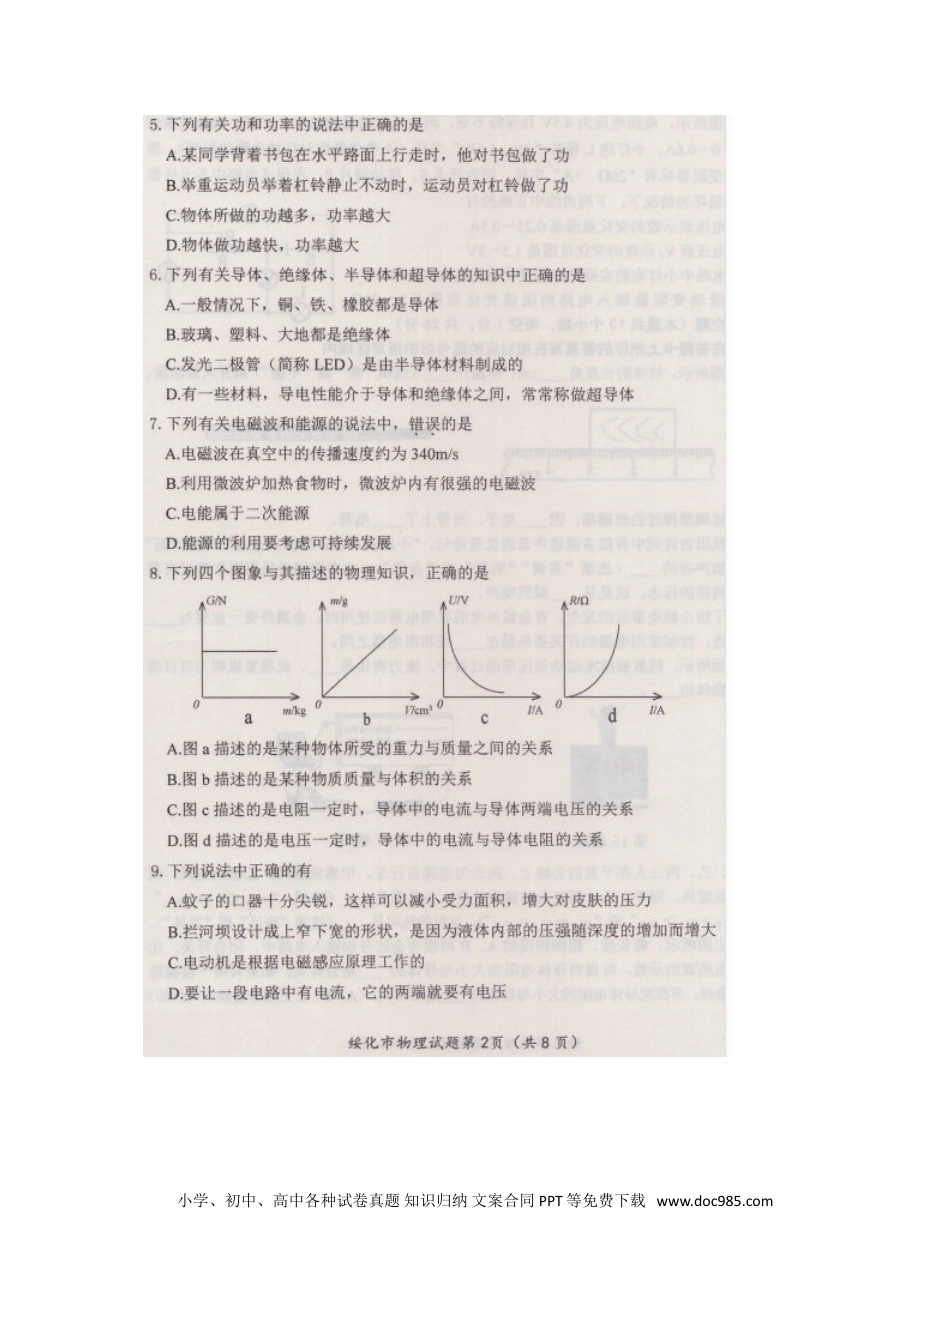 5. 下列有关功和功率的说法中正确的是
A.某同学背着书包在水平路面上行走时，他对书包做了功
B.举重运动员举着杠铃静止不动时，运动员对杠铃做了功
C.物体所做的功越多，功率越大
D.物体做功越快，功率越大
6. 下列有关导体、绝缘体、半导体和超导体的知识中正确的是
A.一般情况下，铜、铁、橡胶都是导体
B.玻璃、塑料、大地都是绝缘体
C.发光二极管（简称 LED）是由半导体材料制成的
D.有一些材料，导电性能介于导体和绝缘体之间，常常称做超导体
7. 下列有关电磁波和能源的说法中，错误的是
A.电磁波在真空中的传播速度约为 340m/s
B.利用微波炉加热食物时，微波炉内有很强的电磁波
C.电能属于二次能源
D.能源的利用要考虑可持续发展
8. 下列四个图象与其描述的物理知识，正确的是
G/N m/g U/V R/Ω
0 m/kg 0 V/cm³ 0 I/A 0 I/A
a b c d
A.图 a 描述的是某种物体所受的重力与质量之间的关系
B.图 b 描述的是某种物质质量与体积的关系
C.图 c 描述的是电阻一定时，导体中的电流与导体两端电压的关系
D.图 d 描述的是电压一定时，导体中的电流与导体电阻的关系
9. 下列说法中正确的有
A.蚊子的口器十分尖锐，这样可以减小受力面积，增大对皮肤的压力
B.拦河坝设计成上窄下宽的形状，是因为液体内部的压强随深度的增加而增大
C.电动机是根据电磁感应原理工作的
D.要让一段电路中有电流，它的两端就要有电压
绥化市物理试题第 2页（共 8 页）
小学、初中、高中各种试卷真题 知识归纳 文案合同 PPT 等免费下载 www.doc985.com